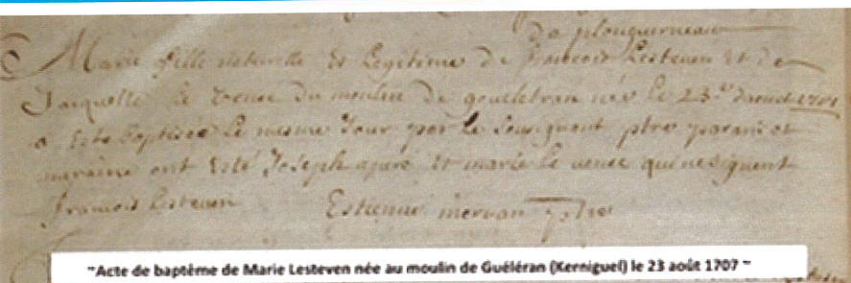 de plouguerneau
Marie fille naturelle et Legitime de francois Lesteven et de
Jacquette le venec du moulin de goueletran née le 23.e daoust 1707
a este baptisée le mesme Jour par le Sousignant ptre parain et
maraine ont esté Joseph et marie le venec qui ne signent
francois Lesteven Estienne morvan ptre
~Acte de baptême de Marie Lesteven née au moulin de Guéléran (Kerniguel) le 23 août 1707 ~